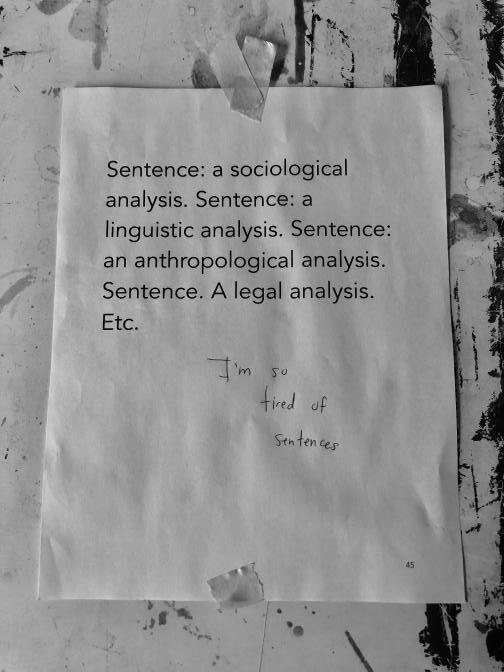 Sentence: a sociological
analysis. Sentence: a
linguistic analysis. Sentence:
an anthropological analysis.
Sentence. A legal analysis.
Etc.
I'm so
tired of
sentences
45